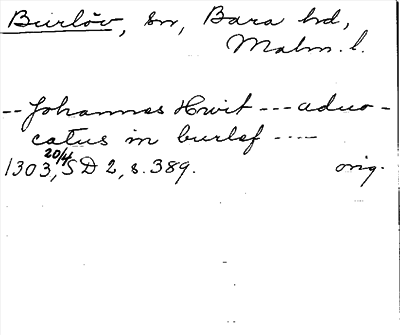 Burlöv, sn, Bara hd,
Malm. l.
-- Johannes Hwit --- aduo-
catus in burlef ----
1303, 20/4, SD 2, s. 389. orig.